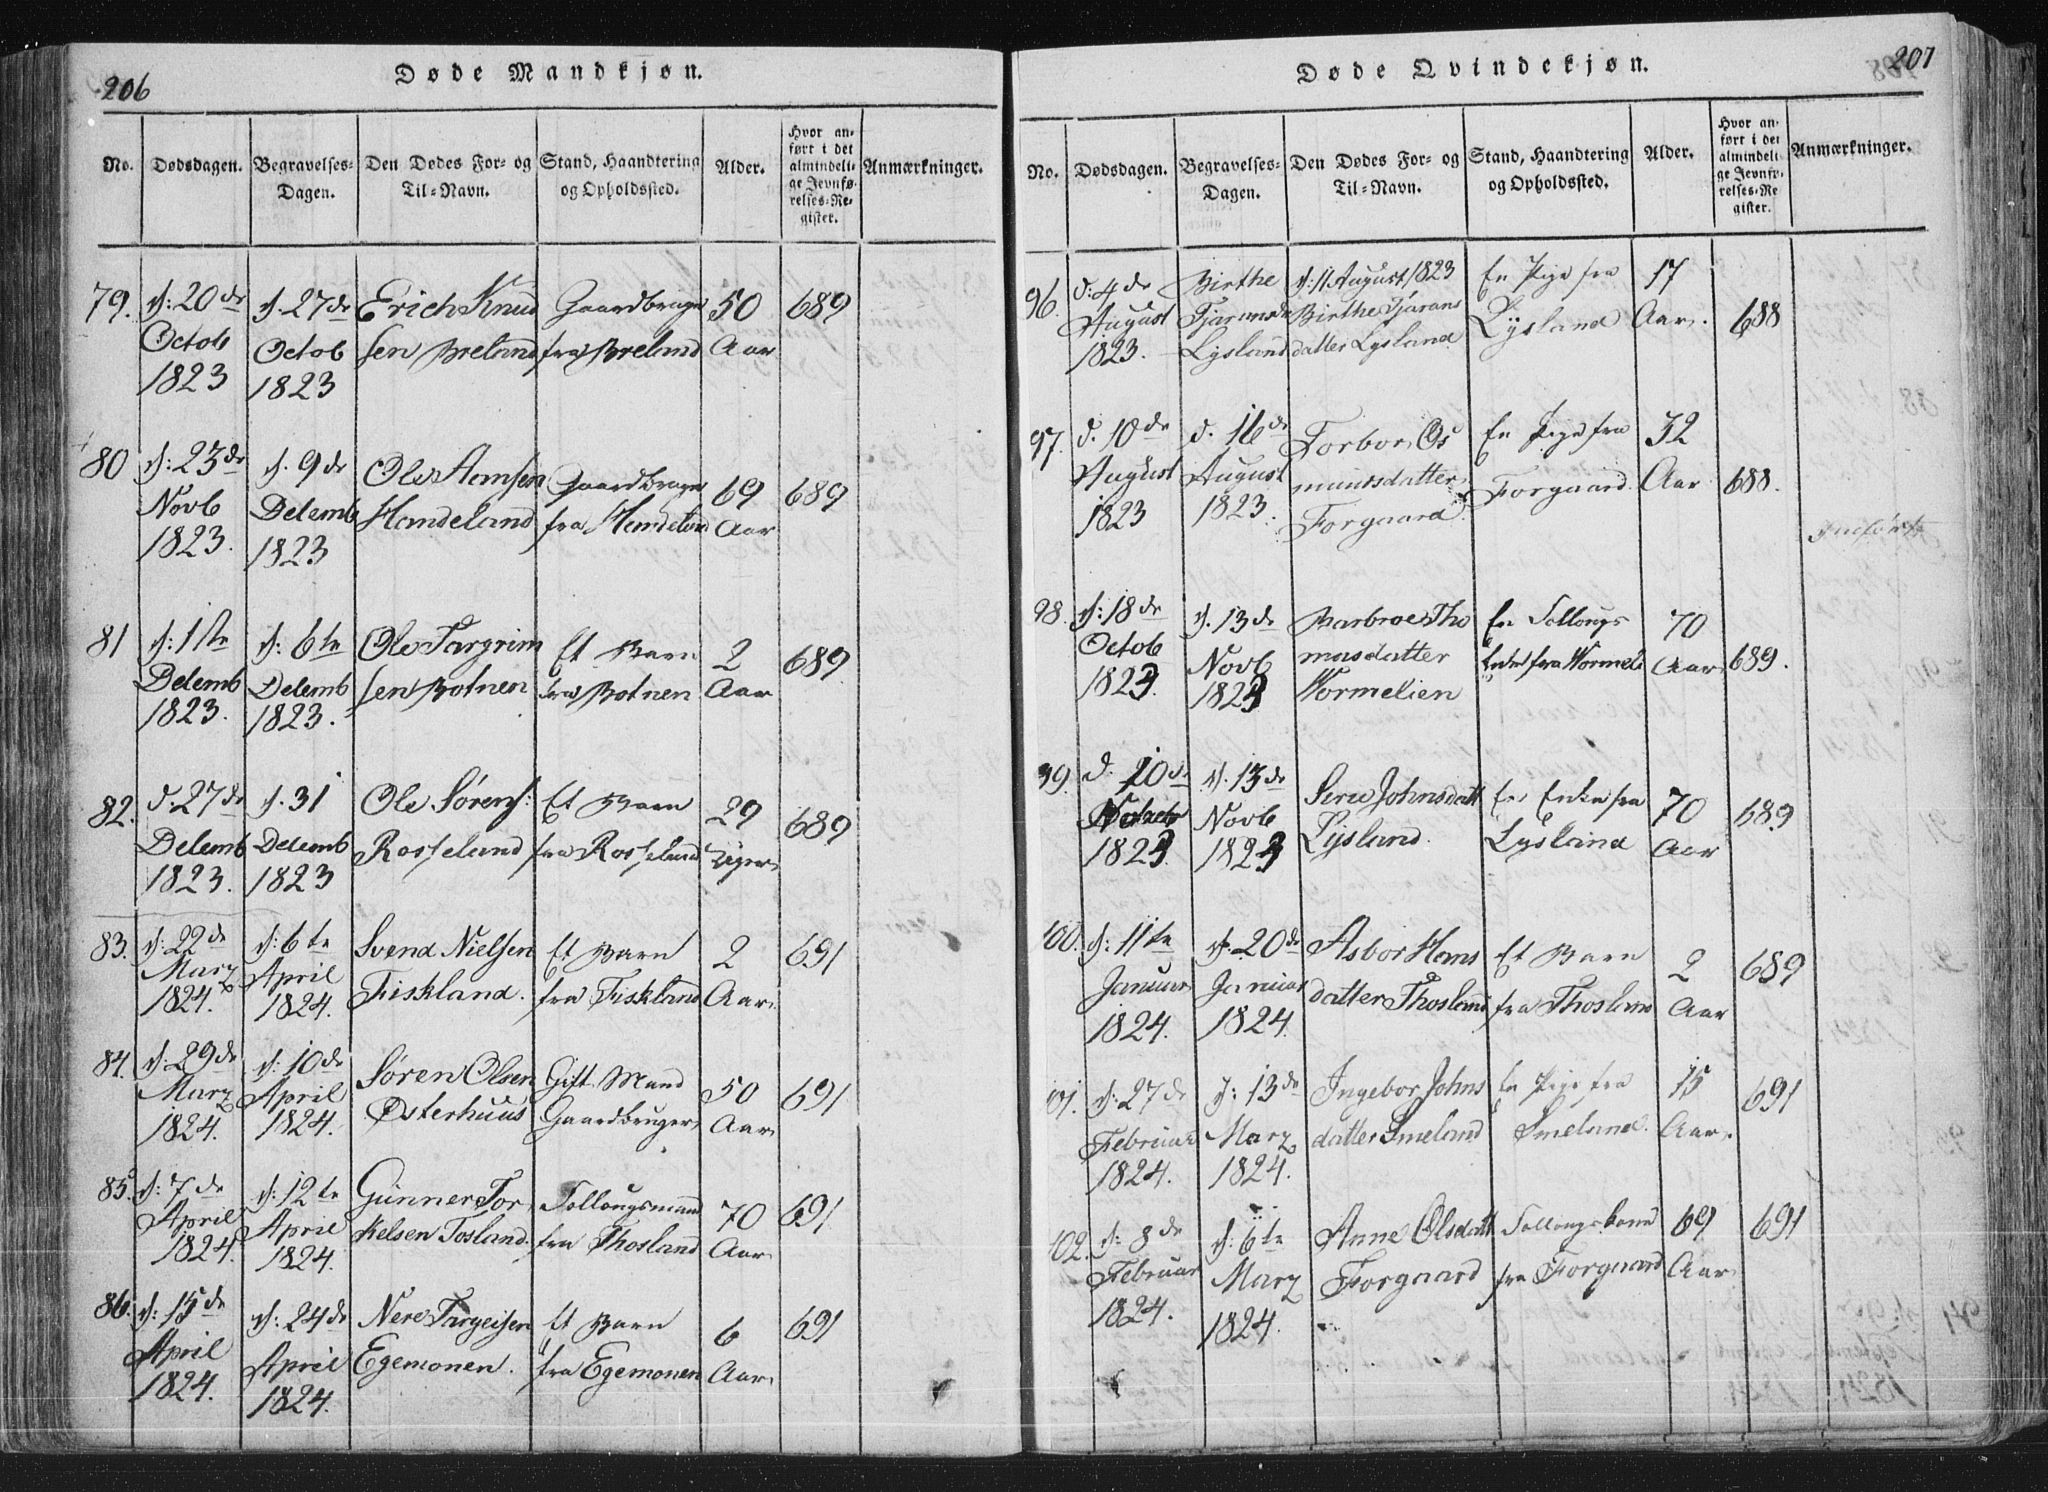 206
Døde Mandkjøn.
No.
Dødsdagen.
Begravelses-
Dagen.
Den Dødes For- og
Til-Navn.
Stand, Haandtering
og Opholdssted.
Alder.
Hvor an-
ført i det
almindeli-
ge Jevnfø-
relses-Re-
gister.
Anmærkninger.
79. d: 20de d. 27de Erich Knud Gaardbruger 50 689
Octob Octob sen Breland fra Breland Aar
1823 1823
80 d: 23de d. 9de Ole Aamsen Gaardbruger 69 689
Novb Desemb Handeland fra Handeland Aar
1823. 1823
81 d: 1ste d: 6te Ole Targrim Et Barn 2 689
Desemb Desemb sen Botnen fra Botnen Aar
1823. 1823.
82. d. 27de d. 31 Ole Sørens: Et Barn 29 689
Desemb Desemb Rosseland fra Rosseland Uger
1823. 1823
83. d: 22de d: 6te Svend Nielsen Et Barn 2 691
Marz April Fiskland. fra Fiskland Aar
1824. 1824.
84. d: 29de d: 10de Søren Olsen Gift Mand 50 691
Marz April Østerhuus Gaardbruger Aar
1824. 1824.
85. d: 7de d: 12te Gunner Tor Follougsmand 70 691
April April kelsen Tosland. fra Thosland Aar
1824. 1824.
86. d: 15de d: 24de Nere Targeisen Et Barn 6 691
April April Egemonen. fra Egemonen Aar
1824. 1824.
207
Døde Qvindekjøn.
No.
Dødsdagen.
Begravelses-
Dagen.
Den Dødes For- og
Til-Navn.
Stand, Haandtering
og Opholdssted.
Alder.
Hvor an-
ført i det
almindeli-
ge Jevnfø-
relses-Re-
gister.
Anmærkninger.
96. d: 4de Birthe d: 11 August 1823 En Pige fra 17
August Birthe Tjarans Lysland Aar. 688
1823. Lysland datter Lysland
97. d. 10de d. 16de Torbor Os En Pige fra 32
August August mundsdatter Forgaard Aar 688.
1823 1823. Forgaard.
98. d: 18de d. 13de Barbroe Tho En Follougs 70
Octob Novb masdatter Enke fra Wormeli Aar 689.
1823. 1823 Wormelien
99. d. 10de d. 13de Johnsdatt En Enke fra 70 689
Novb Lysland. Lysland Aar
1823. 1823
100. d: 11te d. 20de Asbor Hans Et Barn 2 689
Januar Januar datter Thosland fra Thosland Aar
1824. 1824.
101. d: 27de d: 13de Ingebor Johns En Pige fra 15 691
Februar Marz datter Smeland Smeland. Aar.
1824. 1824.
102. d: 8de d: 6te Anne Olsdatt Follougskone 69 691
Februar Marz Forgaard fra Forgaard Aar
1824. 1824.